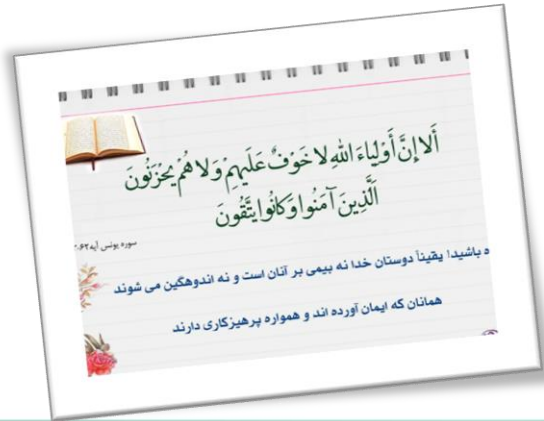 أَلا إِنَّ أَوْلِياءَ اللَّهِ لا خَوْفٌ عَلَيْهِمْ وَلا هُمْ يَحْزَنُونَ
الَّذِينَ آمَنُوا وَكانُوا يَتَّقُونَ
سوره یونس آیه ۶۲
ه باشید! یقیناً دوستان خدا نه بیمی بر آنان است و نه اندوهگین می شوند
همانان که ایمان آورده اند و همواره پرهیزکاری دارند